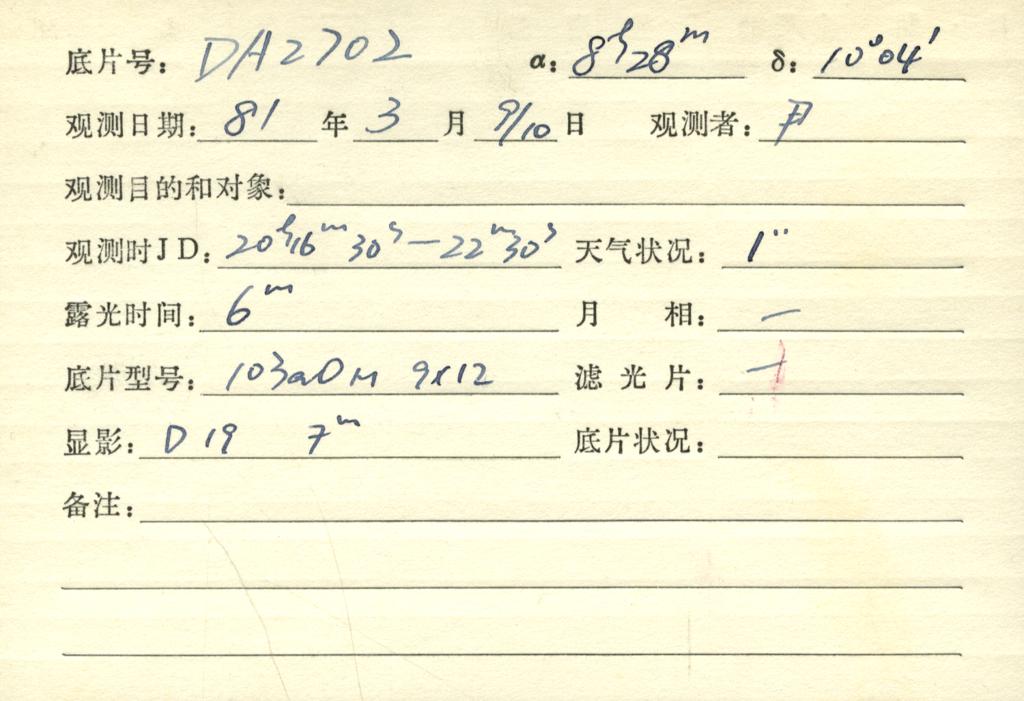 底片号: DA2702 α: 8h28m δ: 10°04′
观测日期: 81 年 3 月 9/10 日 观测者: 尹
观测目的和对象:
观测时JD: 20h16m30s—22m30s 天气状况: 1″
露光时间: 6m 月 相: —
底片型号: 103aO 9x12 滤光片: —
显影: D19 7m 底片状况:
备注: